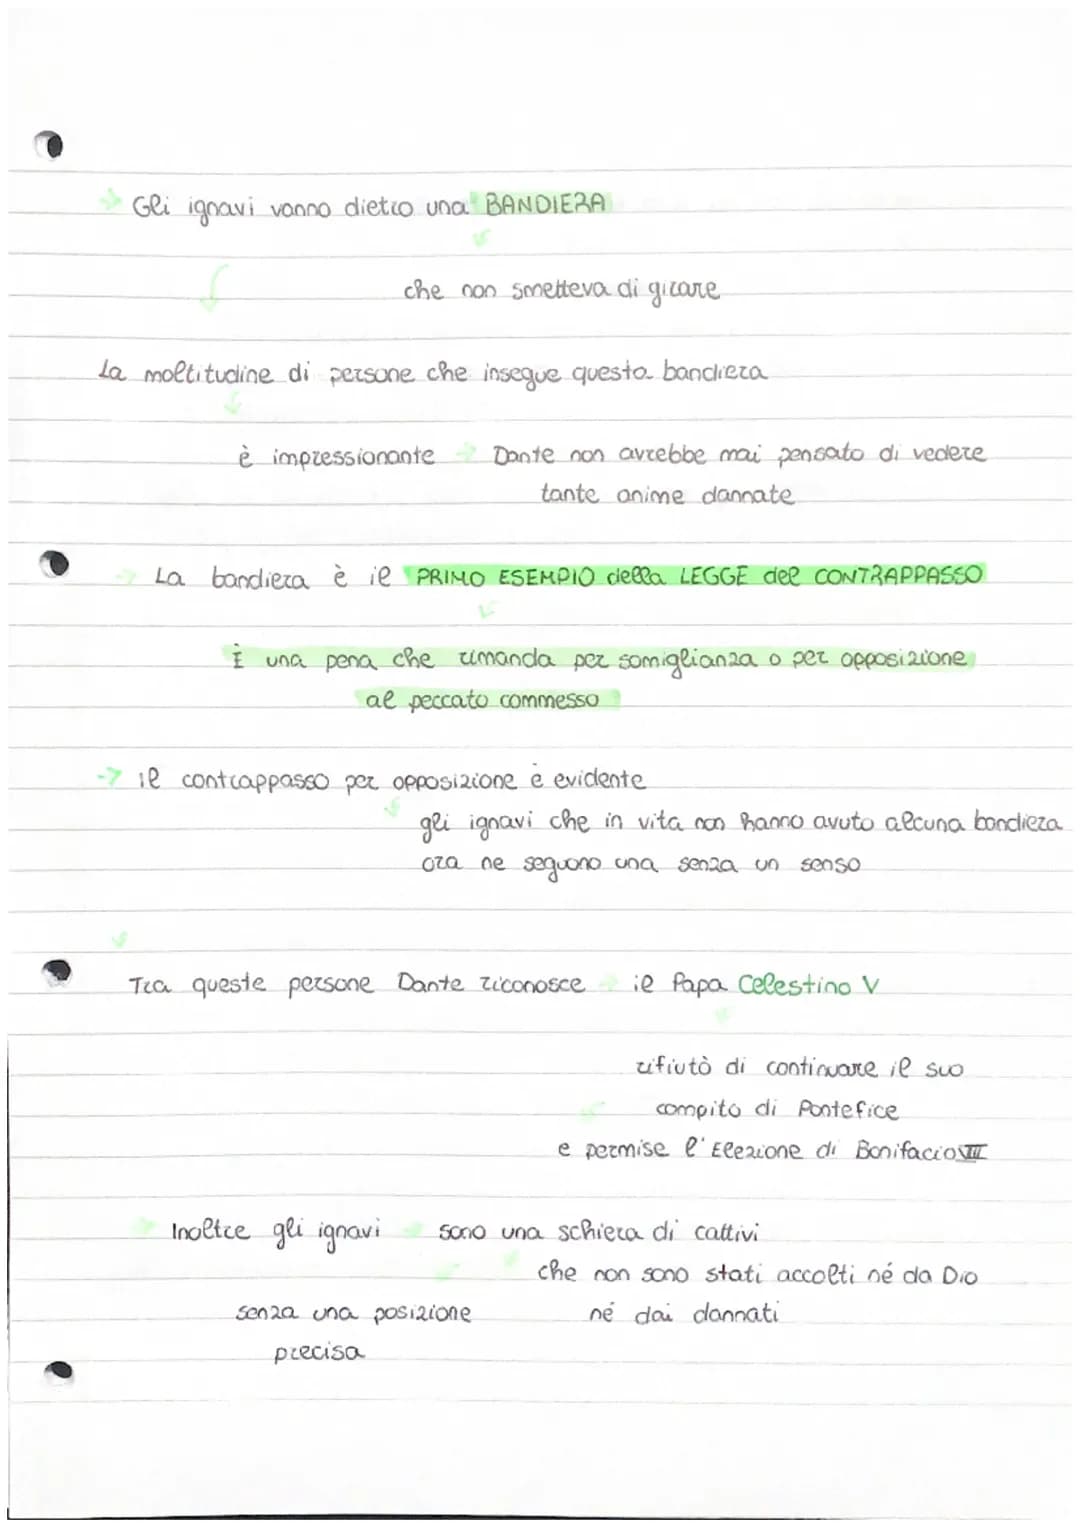 Gli ignavi vanno dietro una BANDIERA
che non smetteva di girare
La moltitudine di persone che insegue questa bandiera
è impressionante → Dante non avrebbe mai pensato di vedere
tante anime dannate
→ La bandiera è il PRIMO ESEMPIO della LEGGE del CONTRAPPASSO
È una pena che rimanda per somiglianza o per opposizione
al peccato commesso
-> il contrappasso per opposizione è evidente
gli ignavi che in vita non hanno avuto alcuna bandiera
ora ne seguono una senza un senso
Tra queste persone Dante riconosce → il Papa Celestino V
rifiutò di continuare il suo
compito di Pontefice
e permise l'Elezione di Bonifacio VIII
Inoltre gli ignavi → sono una schiera di cattivi
che non sono stati accolti né da Dio
senza una posizione né dai dannati
precisa